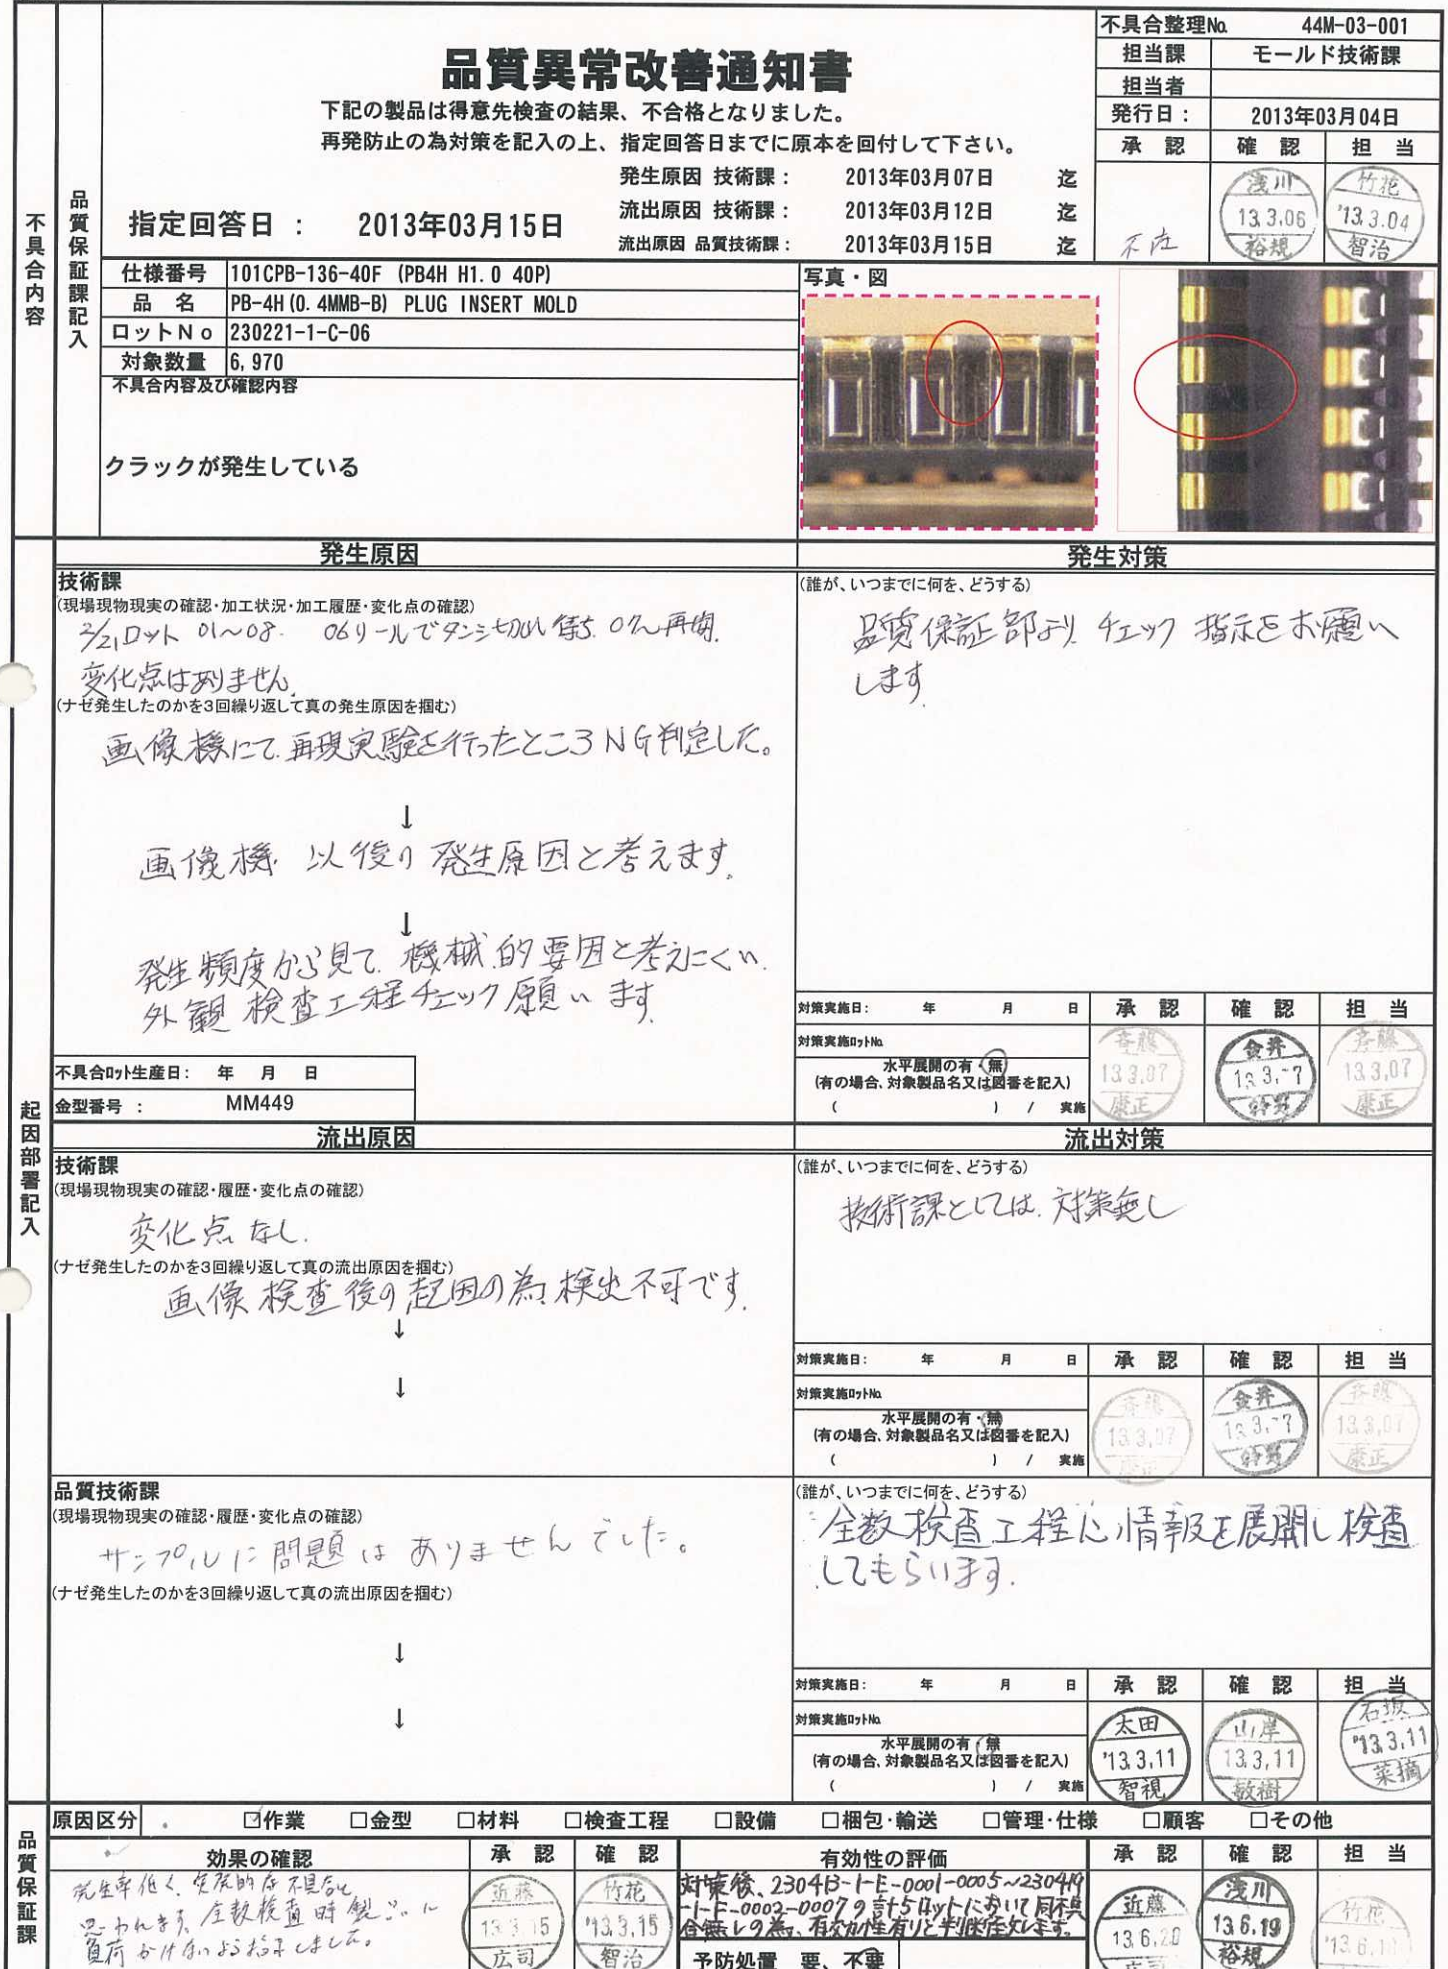 不具合整理No. 44M-03-001
担当課 モールド技術課
担当者
発行日： 2013年03月04日
承認 確認 担当
不在
浅川 13.3.06 裕規
竹花 '13.3.04 智治
品質異常改善通知書
下記の製品は得意先検査の結果、不合格となりました。
再発防止の為対策を記入の上、指定回答日までに原本を回付して下さい。
発生原因 技術課： 2013年03月07日 迄
流出原因 技術課： 2013年03月12日 迄
流出原因 品質技術課： 2013年03月15日 迄
指定回答日 ： 2013年03月15日
不具合内容
品質保証課記入
仕様番号 101CPB-136-40F (PB4H H1.0 40P)
品名 PB-4H(0.4MMB-B) PLUG INSERT MOLD
ロットNo 230221-1-C-06
対象数量 6,970
不具合内容及び確認内容
クラックが発生している
写真・図
起因部署記入
発生原因
技術課
(現場現物現実の確認・加工状況・加工履歴・変化点の確認)
2/21ロット 01～08. 06リールでタンシ切れ 07〜再開.
変化点はありません.
(ナゼ発生したのかを3回繰り返して真の発生原因を掴む)
画像機にて再現実験を行ったところNG判定した。
↓
画像機 以後の発生原因と考えます.
↓
発生頻度から見て、機械的要因と考えにくい.
外観検査工程チェック願います.
不具合ロット生産日： 年 月 日
金型番号 ： MM449
発生対策
(誰が、いつまでに何を、どうする)
品質保証部より チェック指示をお願い
します.
対策実施日： 年 月 日
対策実施ロットNo.
水平展開の有・無
(有の場合、対象製品名又は図番を記入)
( ) / 実施
承認 確認 担当
斉藤 13.3.07 康正
金井 13.3.-7
斉藤 13.3.07 康正
流出原因
技術課
(現場現物現実の確認・履歴・変化点の確認)
変化点なし.
(ナゼ発生したのかを3回繰り返して真の流出原因を掴む)
画像検査後の起因の為、検出不可です.
↓
↓
流出対策
(誰が、いつまでに何を、どうする)
技術課としては、対策無し
対策実施日： 年 月 日
対策実施ロットNo.
水平展開の有・無
(有の場合、対象製品名又は図番を記入)
( ) / 実施
承認 確認 担当
斉藤 13.3.07 康正
金井 13.3.-7
斉藤 13.3.07 康正
品質技術課
(現場現物現実の確認・履歴・変化点の確認)
サンプルに問題はありませんでした。
(ナゼ発生したのかを3回繰り返して真の流出原因を掴む)
↓
↓
(誰が、いつまでに何を、どうする)
全数検査工程に情報を展開し検査
してもらいます.
対策実施日： 年 月 日
対策実施ロットNo.
水平展開の有・無
(有の場合、対象製品名又は図番を記入)
( ) / 実施
承認 確認 担当
太田 '13.3.11 智視
山岸 13.3.11 敏樹
石坂 '13.3.11 菜摘
品質保証課
原因区分 ☑作業 □金型 □材料 □検査工程 □設備 □梱包・輸送 □管理・仕様 □顧客 □その他
効果の確認
発生率低く、突発的な不具合と
思われます。全数検査時製品に
負荷かけないよう指示しました。
承認 確認
近藤 13.3.15 広司
竹花 '13.3.15 智治
有効性の評価
対策後、230413-1-E-0001-0005～230419
-1-F-0002-0007の計5ロットにおいて同不具
合無しの為、有効性有りと判断致します。
予防処置 要、不要
承認 確認 担当
近藤 13.6.20 広司
浅川 13.6.19 裕規
竹花